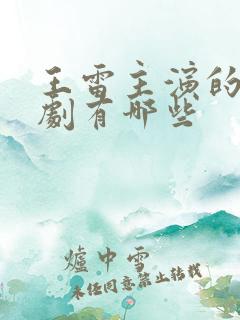 王雷主演的
劇有哪些
爐中雪
未經同意禁止轉載